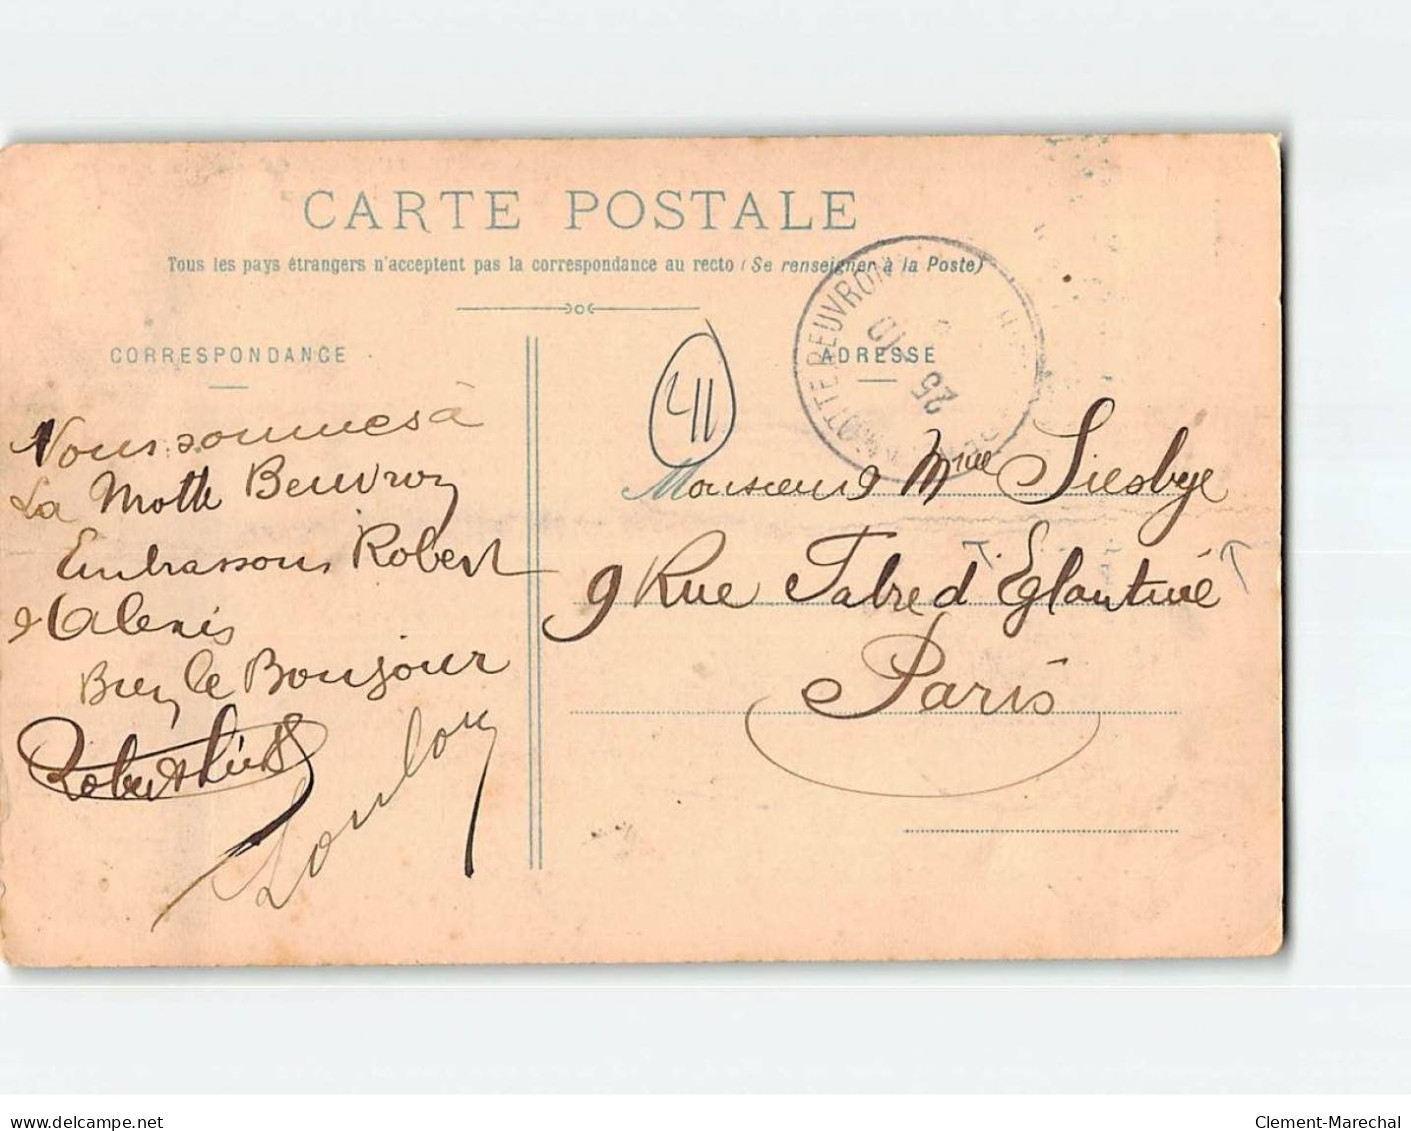 CARTE POSTALE
Tous les pays étrangers n'acceptent pas la correspondance au recto (Se renseigner à la Poste)
CORRESPONDANCE
ADRESSE
LAMOTTE BEUVRON
25 10
41
Nous sommes à
La Motte Beuvron
Embrassons Robert
et Alexis
Bien le Bonjour
Robert
Loulou
Monsieur Mme
9 Rue Fabre d'Eglantine
Paris
delcampe.net
Clement-Marechal